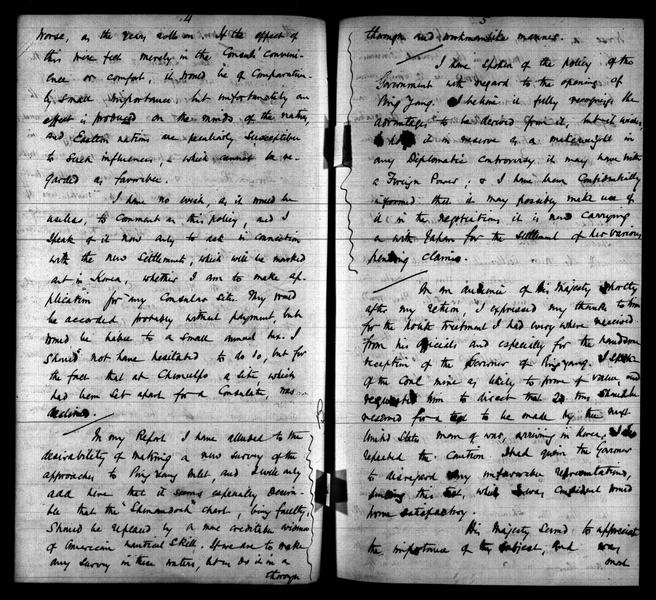 4
worse, as the years roll on. If the effect of
this were felt merely in the Consuls' conveni-
ence or comfort, it would be of comparative-
ly small importance, but unfortunately an
effect is produced on the minds of the natives,
and Eastern nations are peculiarly susceptible
to such influences, which cannot be re-
garded as favorable.
I have no wish, as it would be
useless, to comment on this policy, and I
speak of it now only to ask in connection
with the new Settlements, which will be marked
out in Korea, whether I am to make ap-
plication for any Consular site. They would
be accorded probably without payment, but
would be liable to a small annual tax. I
should not have hesitated to do so, but for
the fact that at Chemulpo a site, which
had been set apart for a Consulate, was
declined.
In my Report I have alluded to the
desirability of making a new survey of the
approaches to Ping Yang Inlet, and I will only
add here that it seems especially desira-
ble that the "Shenandoah" chart, being faulty,
should be replaced by a more creditable evidence
of American nautical skill. If we are to make
any survey in these waters, let us do it in a
thorough
5
thorough and workmanlike manner.
I have spoken of the policy of the
Government with regard to the opening of
Ping Yang. I believe it fully recognizes the
advantages to be derived from it, but it wishes
to hold it in reserve as a makeweight in
any Diplomatic controversy it may have with
a Foreign Power; & I have been confidentially
informed that it may possibly make use of
it in the negotiations it is now carrying
on with Japan for the settlement of her various
pending claims.
In an audience of His Majesty shortly
after my return, I expressed my thanks to him
for the polite treatment I had everywhere received
from his officials and especially for the handsome
reception of the Governor of Ping Yang. I spoke
of the Coal mine as likely to prove of value, and
requested him to direct that 20 tons should be
reserved for a test to be made by the next
United States man of war, arriving in Korea. I also
repeated the caution I had given the Governor
to disregard any unfavorable representations,
pending this test, which I was confident would
prove satisfactory.
His Majesty seemed to appreciate
the importance of the subject, and was
most